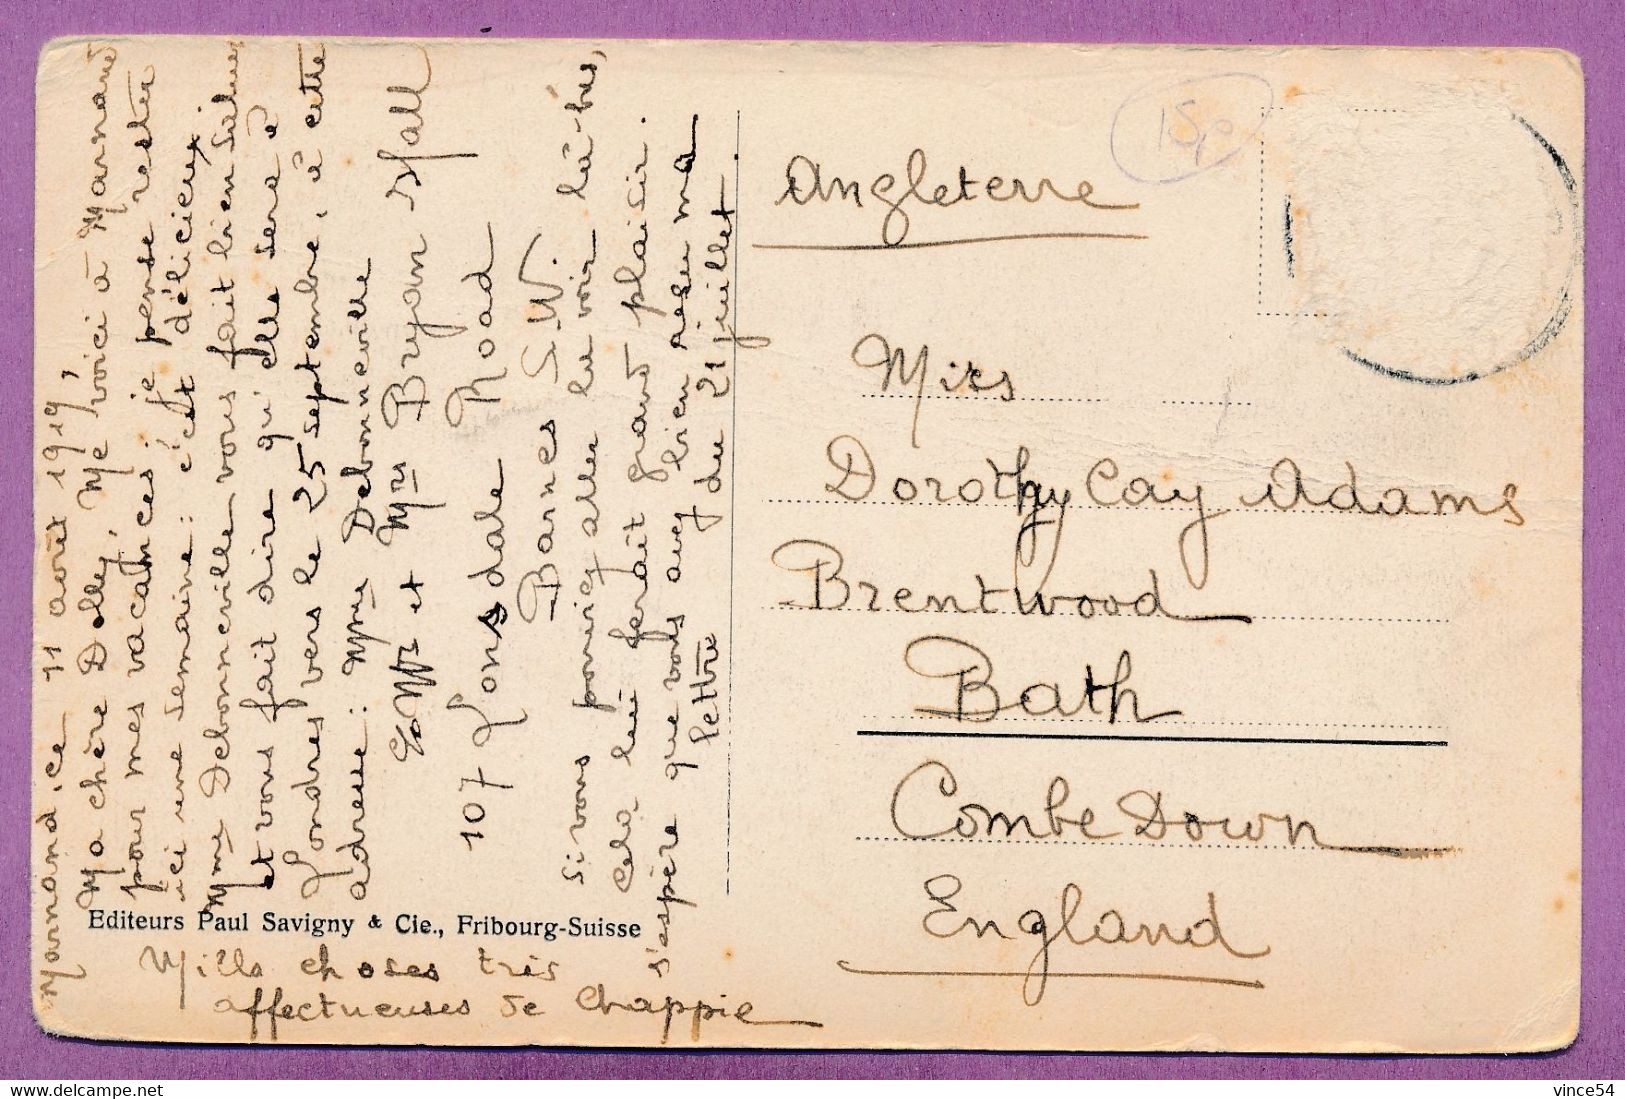 Marnand, ce 11 août 1919,
Ma chère Dolly, Me voici à Marnand
pour mes vacances; je pense rester
ici une semaine: c'est délicieux
Mme Debonneville vous fait bien saluer
et vous fait dire qu'elle sera à
Londres vers le 25 septembre, à cette
adresse: Mme Debonneville
Co Mr et Mrs Bryan Hall
107 Lonsdale Road
Barnes S.W.
Si vous pouviez aller la voir là-bas,
cela lui ferait grand plaisir.
J'espère que vous avez bien reçu ma
lettre du 21 juillet.
Editeurs Paul Savigny & Cie., Fribourg-Suisse
Mille choses très
affectueuses de Chappie
15p
Angleterre
Miss
Dorothy Cay Adams
Brentwood
Bath
Combe Down
England
delcampe.net
vince54